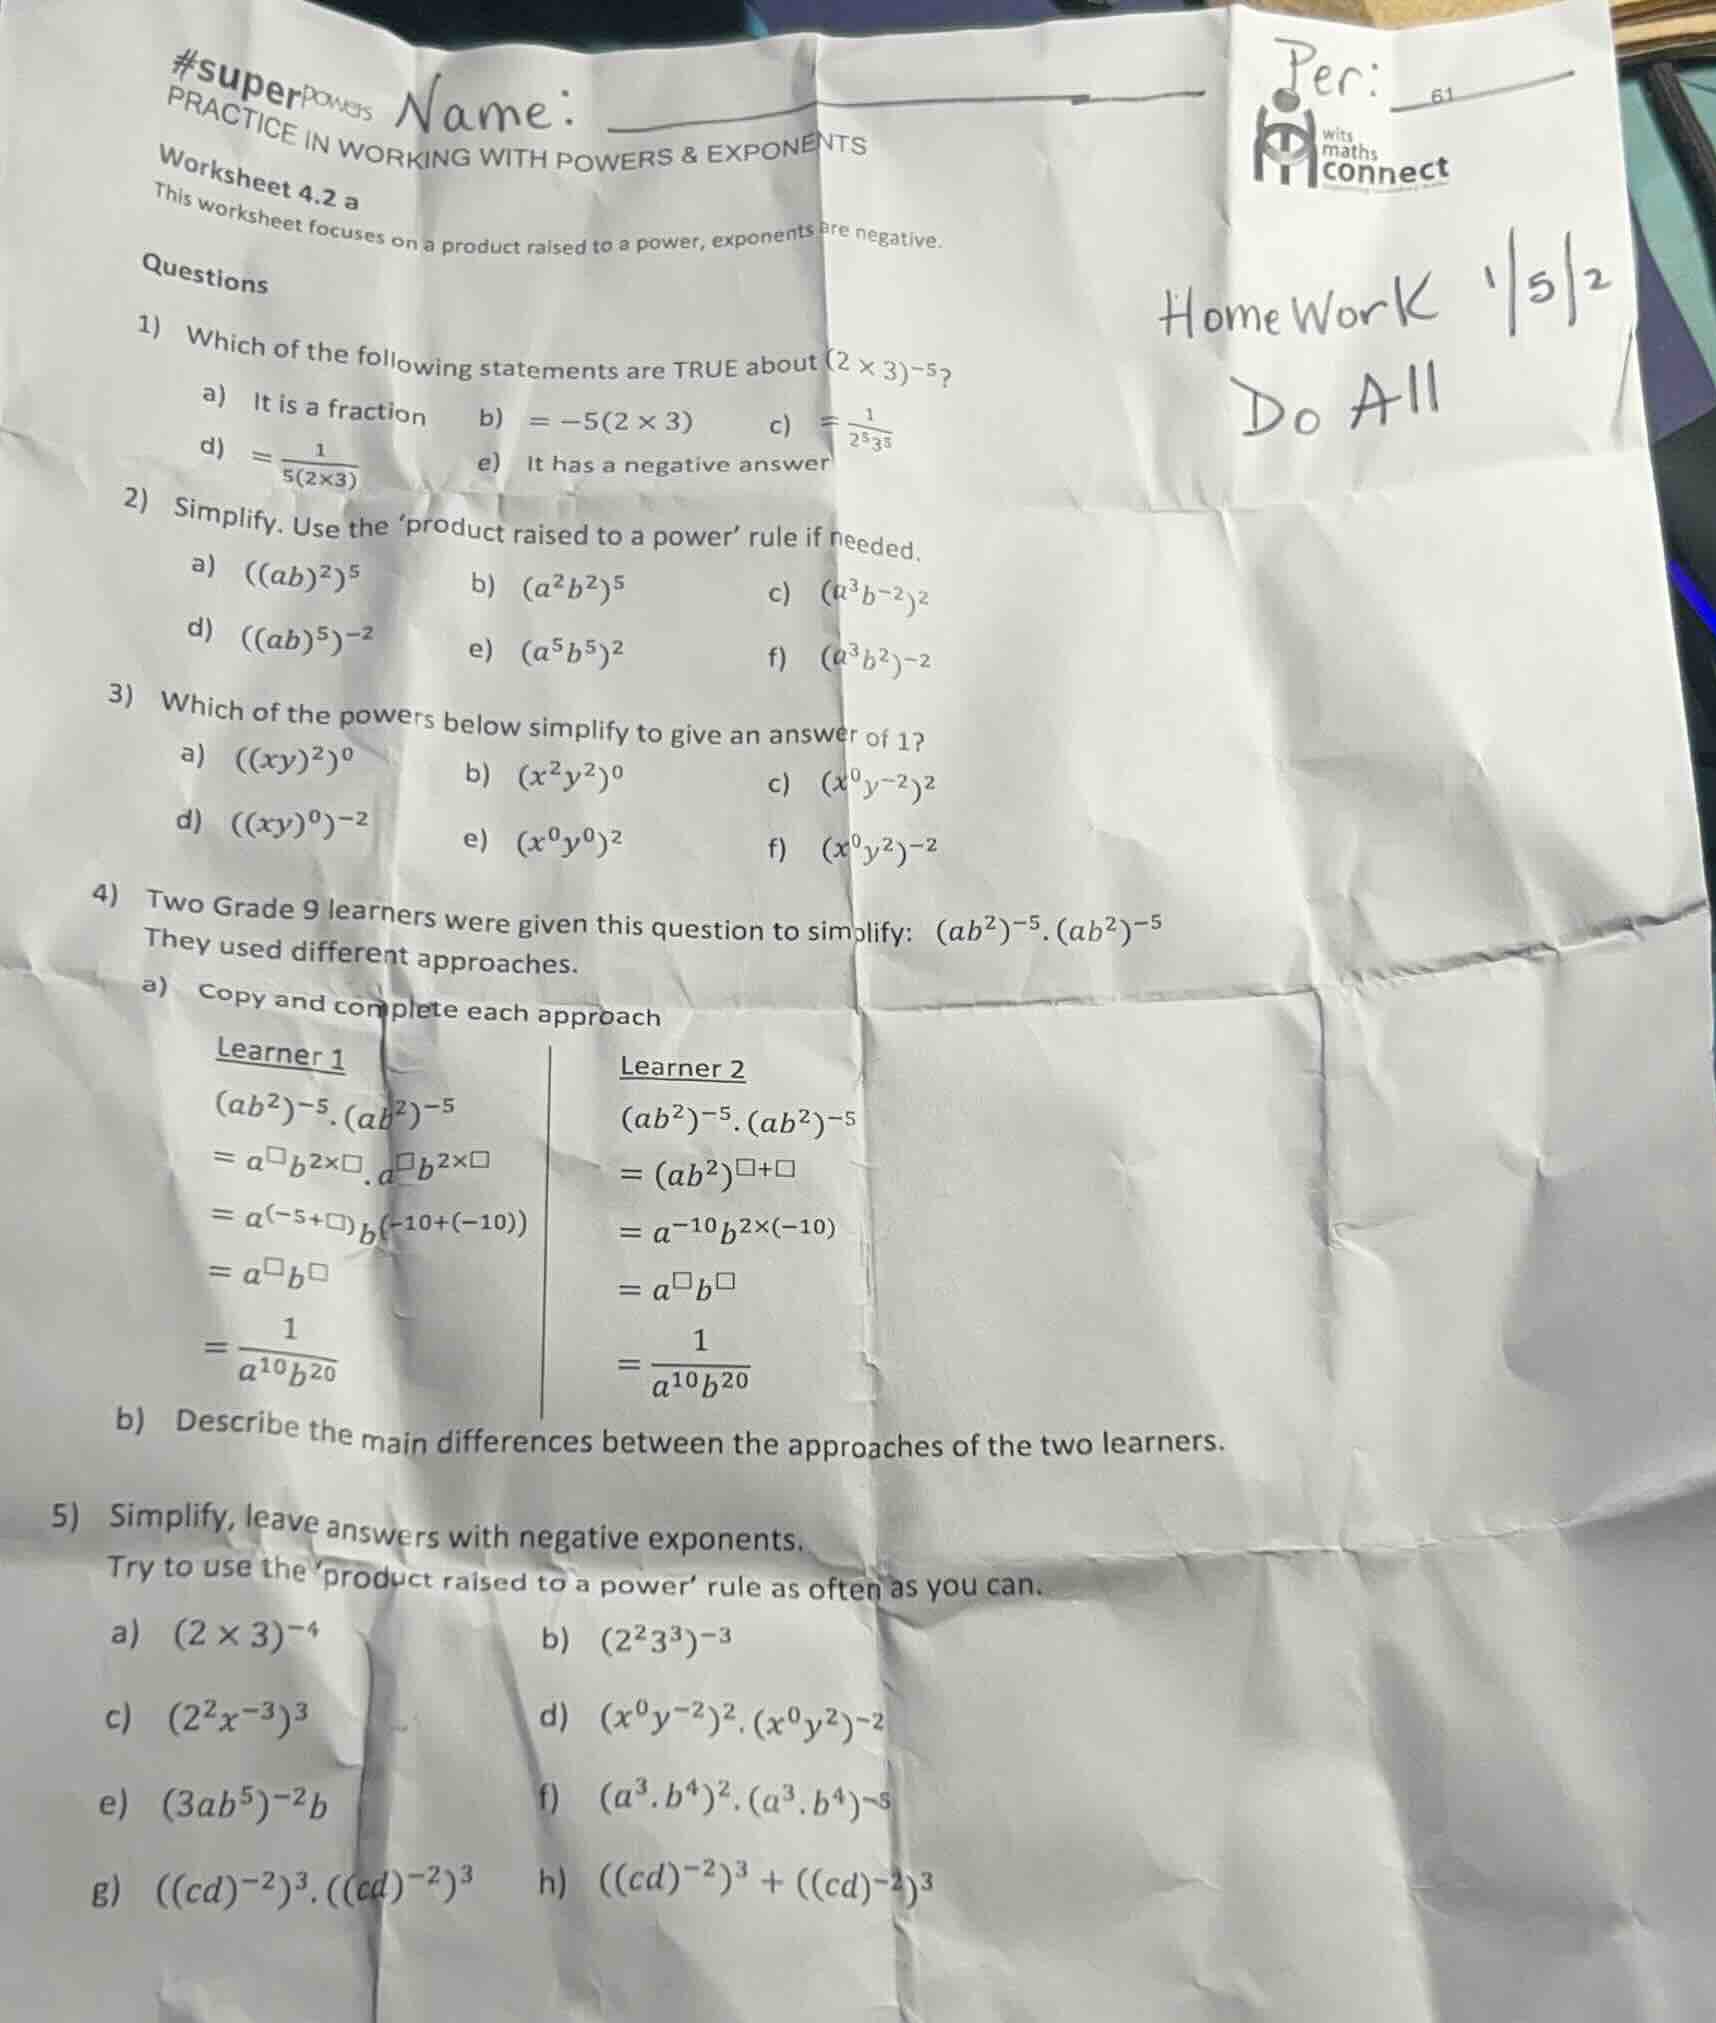 #superpowers Name: Per: 61
PRACTICE IN WORKING WITH POWERS & EXPONENTS
wits
maths
connect
Worksheet 4.2 a
This worksheet focuses on a product raised to a power, exponents are negative.
HomeWork 1/5/2
Do All
Questions
1) Which of the following statements are TRUE about (2 × 3)⁻⁵?
a) It is a fraction b) = −5(2 × 3) c) = 1/(2⁵3⁵)
d) = 1/(5(2×3)) e) It has a negative answer
2) Simplify. Use the ‘product raised to a power’ rule if needed.
a) ((ab)²)⁵ b) (a²b²)⁵ c) (a³b⁻²)²
d) ((ab)⁵)⁻² e) (a⁵b⁵)² f) (a³b²)⁻²
3) Which of the powers below simplify to give an answer of 1?
a) ((xy)²)⁰ b) (x²y²)⁰ c) (x⁰y⁻²)²
d) ((xy)⁰)⁻² e) (x⁰y⁰)² f) (x⁰y²)⁻²
4) Two Grade 9 learners were given this question to simplify: (ab²)⁻⁵.(ab²)⁻⁵
They used different approaches.
a) Copy and complete each approach
Learner 1
(ab²)⁻⁵.(ab²)⁻⁵
= a^□b^(2×□).a^□b^(2×□)
= a^(−5+□)b^(−10+(−10))
= a^□b^□
= 1/(a¹⁰b²⁰)
Learner 2
(ab²)⁻⁵.(ab²)⁻⁵
= (ab²)^(□+□)
= a⁻¹⁰b^(2×(−10))
= a^□b^□
= 1/(a¹⁰b²⁰)
b) Describe the main differences between the approaches of the two learners.
5) Simplify, leave answers with negative exponents.
Try to use the ‘product raised to a power’ rule as often as you can.
a) (2 × 3)⁻⁴ b) (2²3³)⁻³
c) (2²x⁻³)³ d) (x⁰y⁻²)².(x⁰y²)⁻²
e) (3ab⁵)⁻²b f) (a³.b⁴)².(a³.b⁴)⁻⁵
g) ((cd)⁻²)³.((cd)⁻²)³ h) ((cd)⁻²)³ + ((cd)⁻²)³